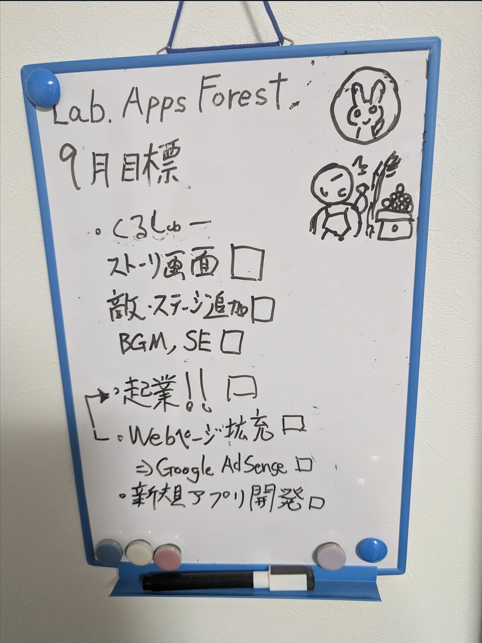 Lab. Apps Forest.
9月目標
・くるしゅー
ストーリ画面 □
敵・ステージ追加 □
BGM, SE □
・起業!! □
・Webページ拡充 □
⇒Google AdSense □
・新規アプリ開発 □